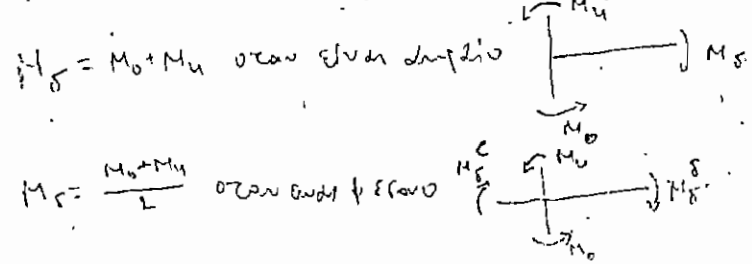 M_δ = M_0 + M_u οταν είναι ακραίο
M_u
M_δ
M_0
M_δ = \frac{M_0 + M_u}{2} οταν ειναι μεσαιο
M_u
M_δ^δ
M_0